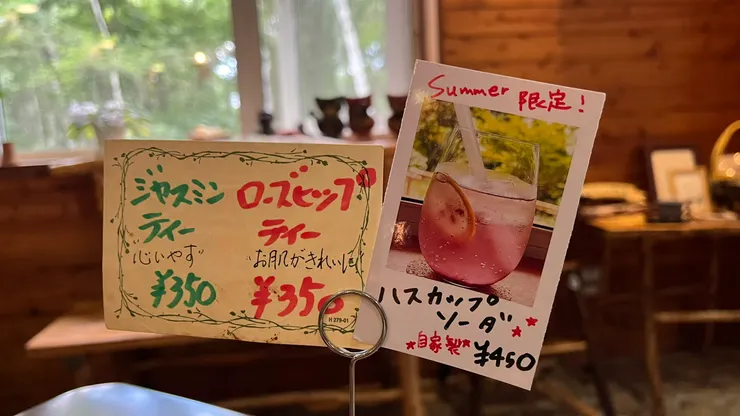 ジャスミン
ティー
"心いやす"
¥350
ローズヒップ
ティー
"お肌がきれいに
¥350
H 279-01
Summer 限定!
ハスカップ
ソーダ
*自家製*
¥450